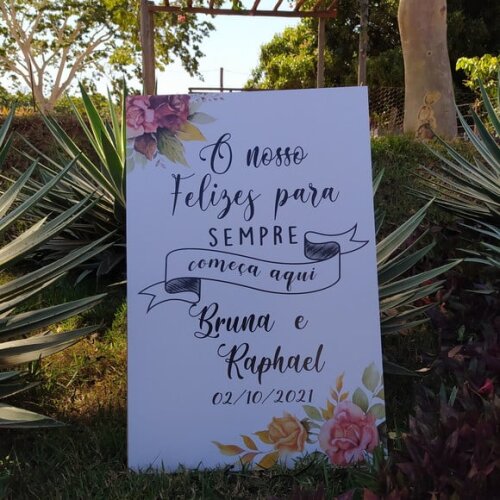 O nosso
Felizes para
SEMPRE
começa aqui
Bruna e
Raphael
02/10/2021